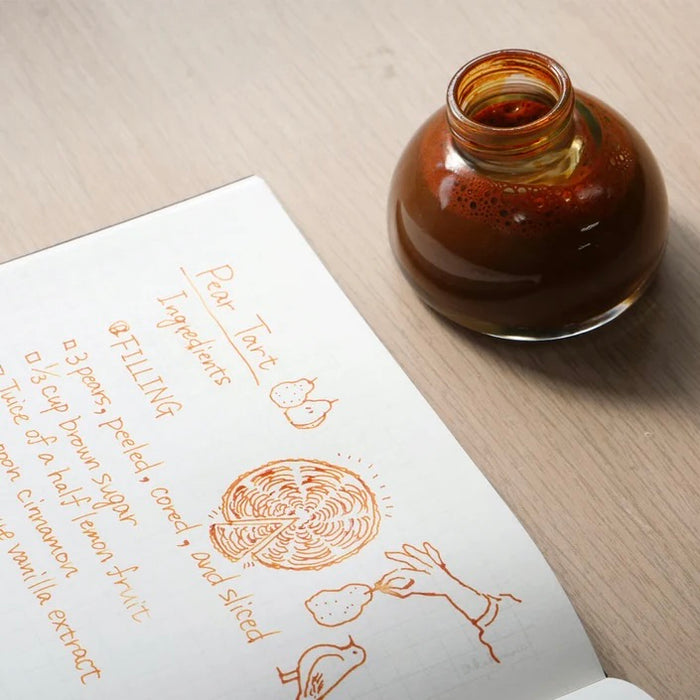 Pear Tart
Ingredients
FILLING
3 pears, peeled, cored, and sliced
⅓ cup brown sugar
Juice of a half lemon fruit
cinnamon
vanilla extract